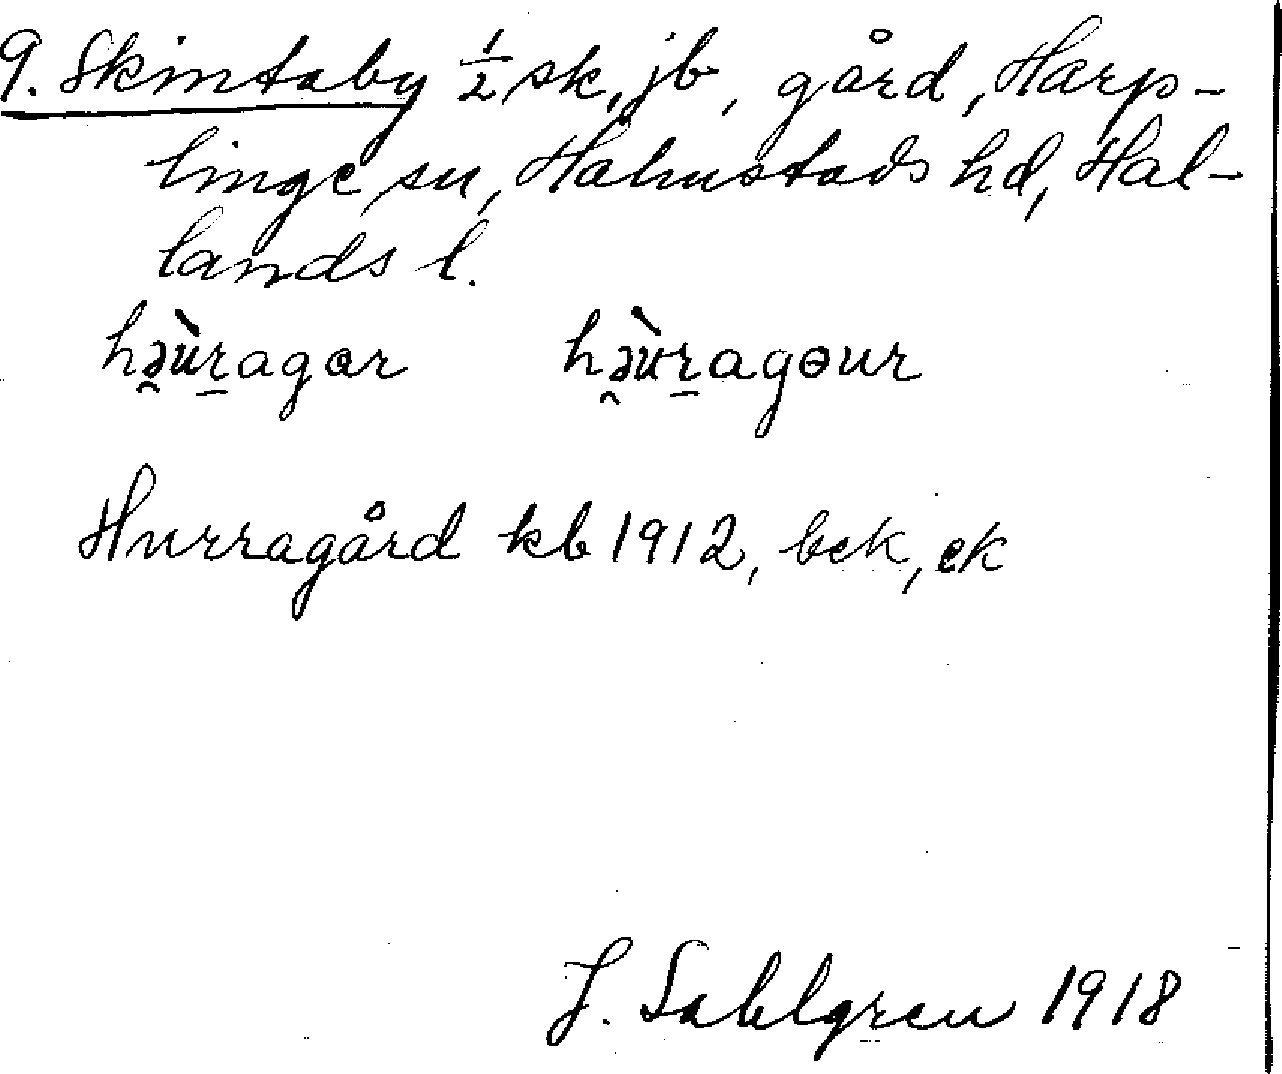 9. Skintaby ½ sk, jb, gård, Harp-
linge sn, Halmstads hd, Hal-
lands l.
hə̯ùṟagɑr hə̯ùṟagəur
Hurragård kb 1912, bek, ek
J. Sahlgren 1918